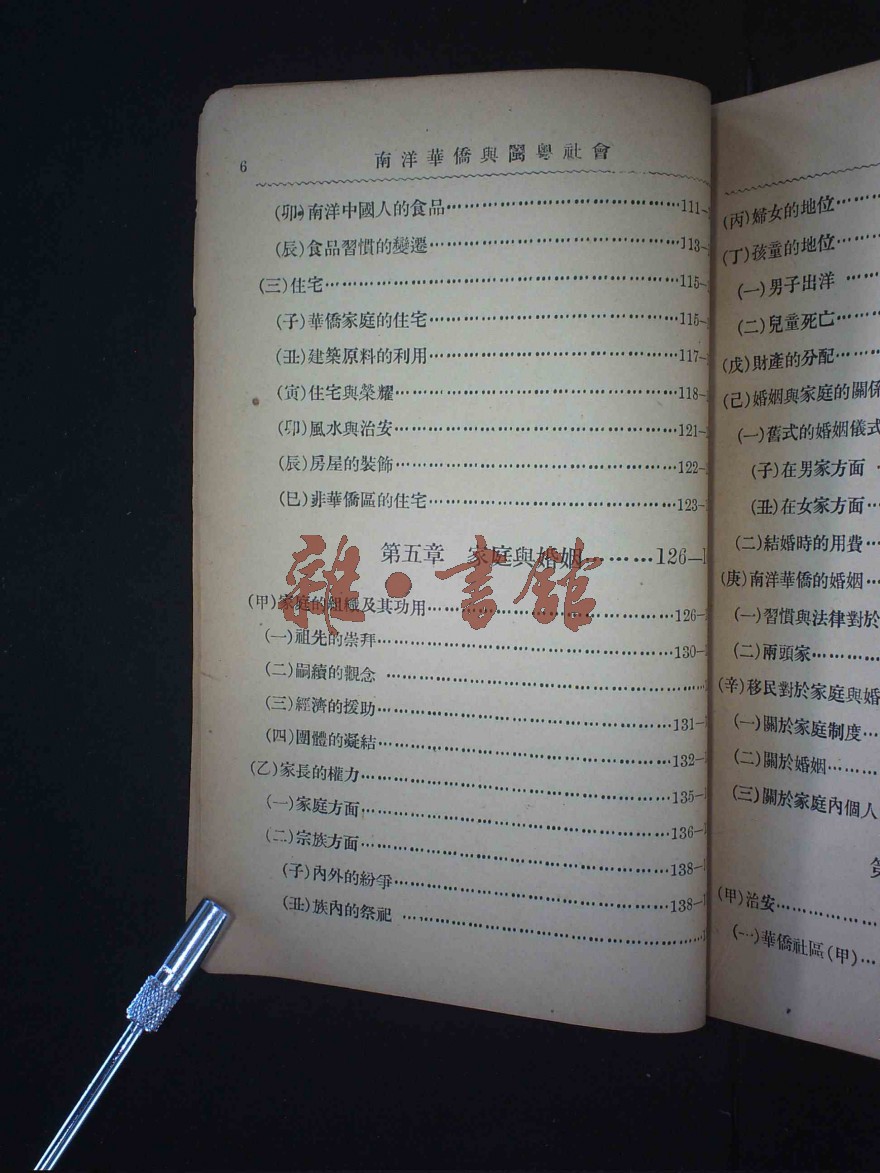 6
南洋華僑與閩粵社會
(卯)南洋中國人的食品……111-
(辰)食品習慣的變遷……113-
(三)住宅……115-
(子)華僑家庭的住宅……115-
(丑)建築原料的利用……117-
(寅)住宅與榮耀……118-
(卯)風水與治安……121-
(辰)房屋的裝飾……122-
(巳)非華僑區的住宅……123-
第五章 家庭與婚姻……126—
(甲)家庭的組織及其功用……126-
(一)祖先的崇拜……130-
(二)嗣續的觀念……
(三)經濟的援助……131-
(四)團體的凝結……132-
(乙)家長的權力……135-
(一)家庭方面……136-
(二)宗族方面……138-
(子)內外的紛爭……138-
(丑)族內的祭祀……
雜·書館
(丙)婦女的地位……
(丁)孩童的地位……
(一)男子出洋……
(二)兒童死亡……
(戊)財產的分配……
(己)婚姻與家庭的關係
(一)舊式的婚姻儀式
(子)在男家方面
(丑)在女家方面…
(二)結婚時的用費…
(庚)南洋華僑的婚姻…
(一)習慣與法律對於
(二)兩頭家……
(辛)移民對於家庭與婚
(一)關於家庭制度…
(二)關於婚姻……
(三)關於家庭內個人
第
(甲)治安……
(一)華僑社區(甲)…